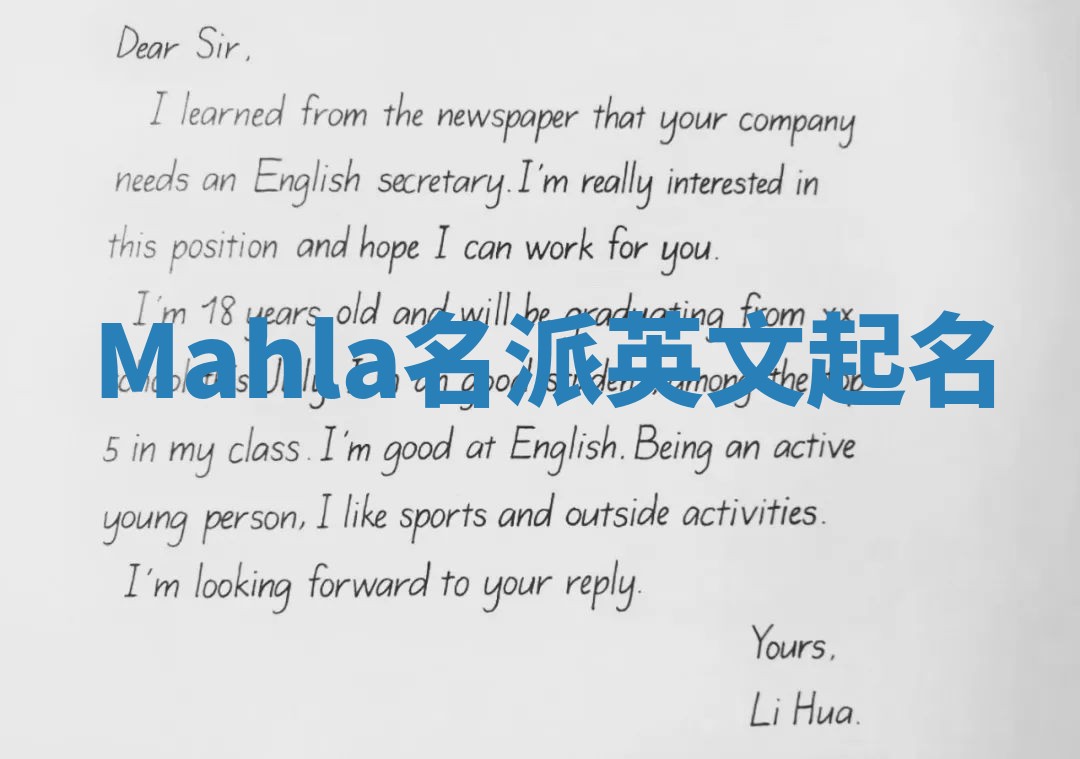 Dear Sir,
I learned from the newspaper that your company
needs an English secretary. I'm really interested in
this position and hope I can work for you.
I'm 18 years old and will be graduating from xx
Mahla名派英文起名
school this July. I'm an good student, among the top
5 in my class. I'm good at English. Being an active
young person, I like sports and outside activities.
I'm looking forward to your reply.
Yours,
Li Hua.